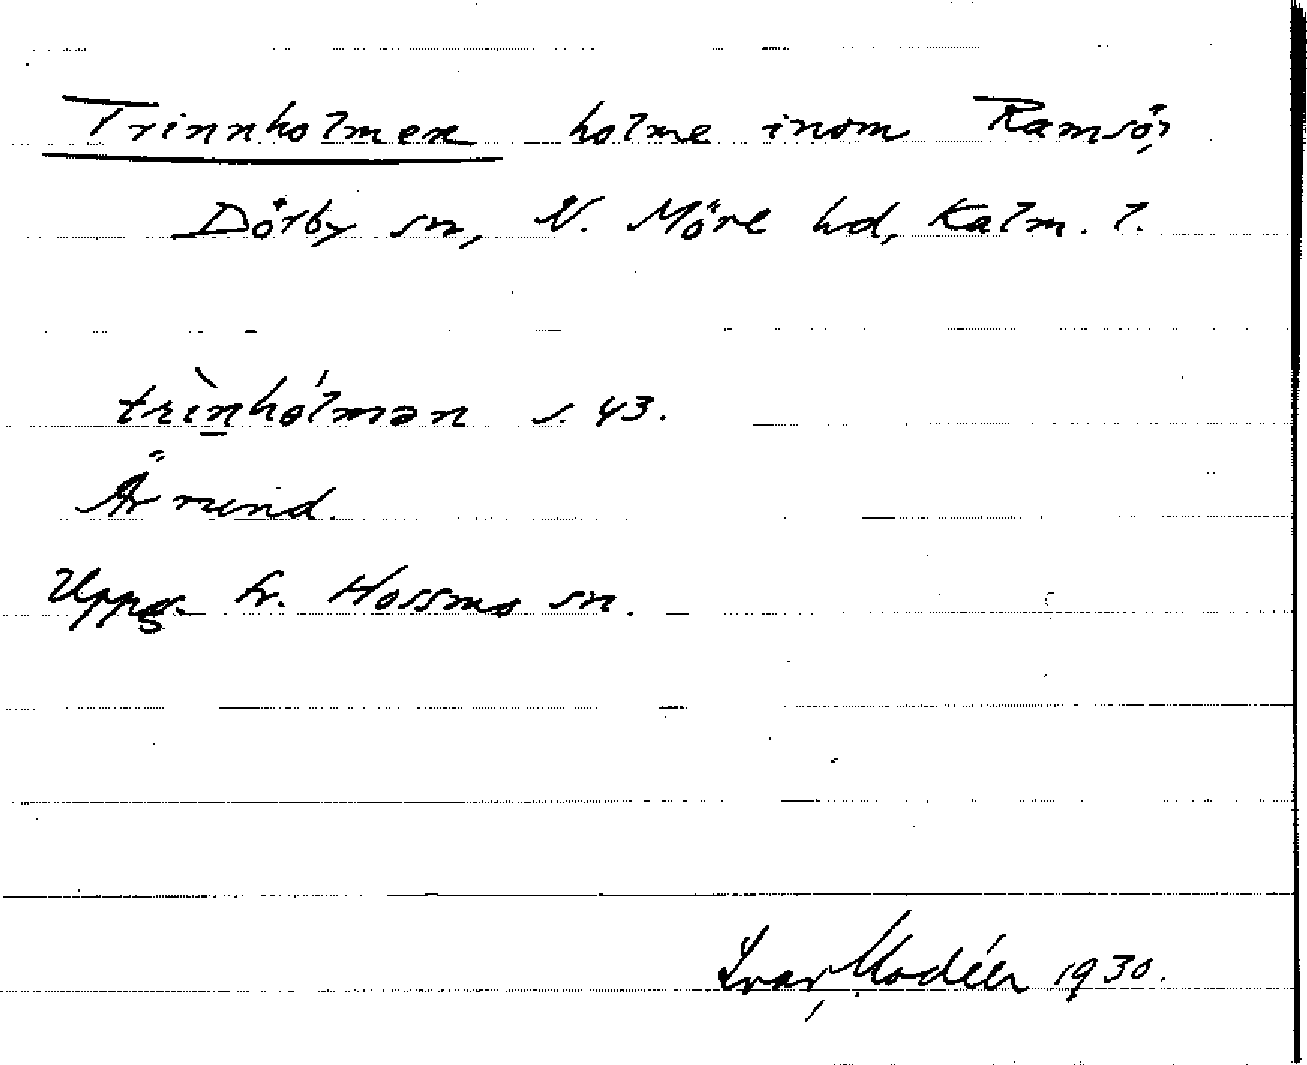 Trinnholmen holme inom Ramsö,
Dörby sn, N. Möre hd, Kalm. l.
trìn̲hólmən s. 43.
Är rund.
Uppg. fr. Hossmo sn.
Ivar Modéer 1930.